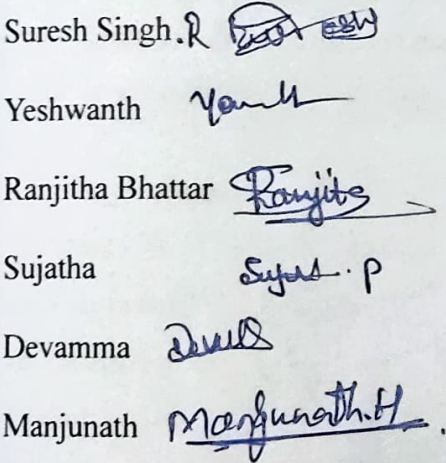 Suresh Singh.R
Yeshwanth
Ranjitha Bhattar Ranjita
Sujatha
Devamma
Manjunath Manjunath.H